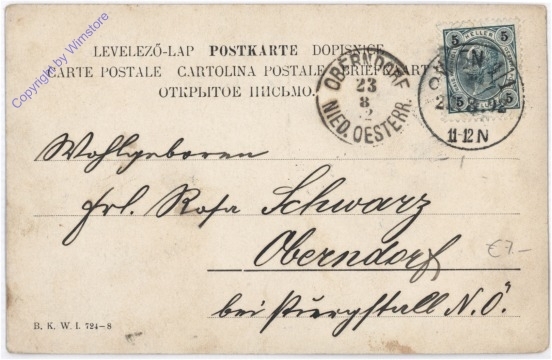 Copyright by Wimstore
LEVELEZŐ-LAP POSTKARTE DOPISNICE
CARTE POSTALE CARTOLINA POSTALE BRIEFKARTA
ОТКРЫТОЕ ПИСЬМО.
OBERNDORF
23
8
2
NIED. OESTERR.
5 HELLER 5
5 5
11-12 N
Wohlgeboren
Frl. Rosa Schwarz
Oberndorf
€7.–
bei Purgstall N.Ö.
B. K. W. I. 724-8